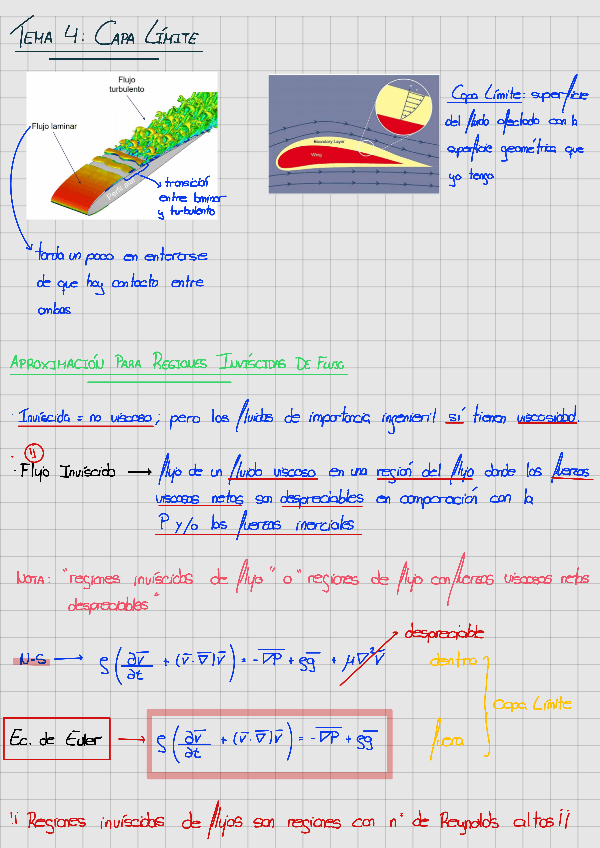 TEMA 4: CAPA LÍMITE
Flujo
turbulento
Flujo laminar
transición
entre laminar
y turbulento
Boundary Layer
Wing
Capa Límite: superficie
del fluido afectado con la
superficie geométrica que
yo tengo
tarda un poco en enterarse
de que hay contacto entre
ambas
APROXIMACIÓN PARA REGIONES INVÍSCIDAS DE FLUJO
· Invíscida = no viscoso; pero los fluidos de importancia ingenieril sí tienen viscosidad.
· Flujo Invíscido → flujo de un fluido viscoso en una región del flujo donde las fuerzas
viscosas netas son despreciables en comparación con la
P y/o las fuerzas inerciales
NOTA: "regiones invíscidas de flujo" o "regiones de flujo con fuerzas viscosas netas
despreciables"
despreciable
N-S → ρ(∂v̄/∂t + (v̄·∇̄)v̄) = -∇̄P + ρḡ + μ∇²v̄
dentro
Capa Límite
fuera
Ec. de Euler → ρ(∂v̄/∂t + (v̄·∇̄)v̄) = -∇̄P + ρḡ
!¡ Regiones invíscidas de flujos son regiones con nº de Reynolds altos ¡¡